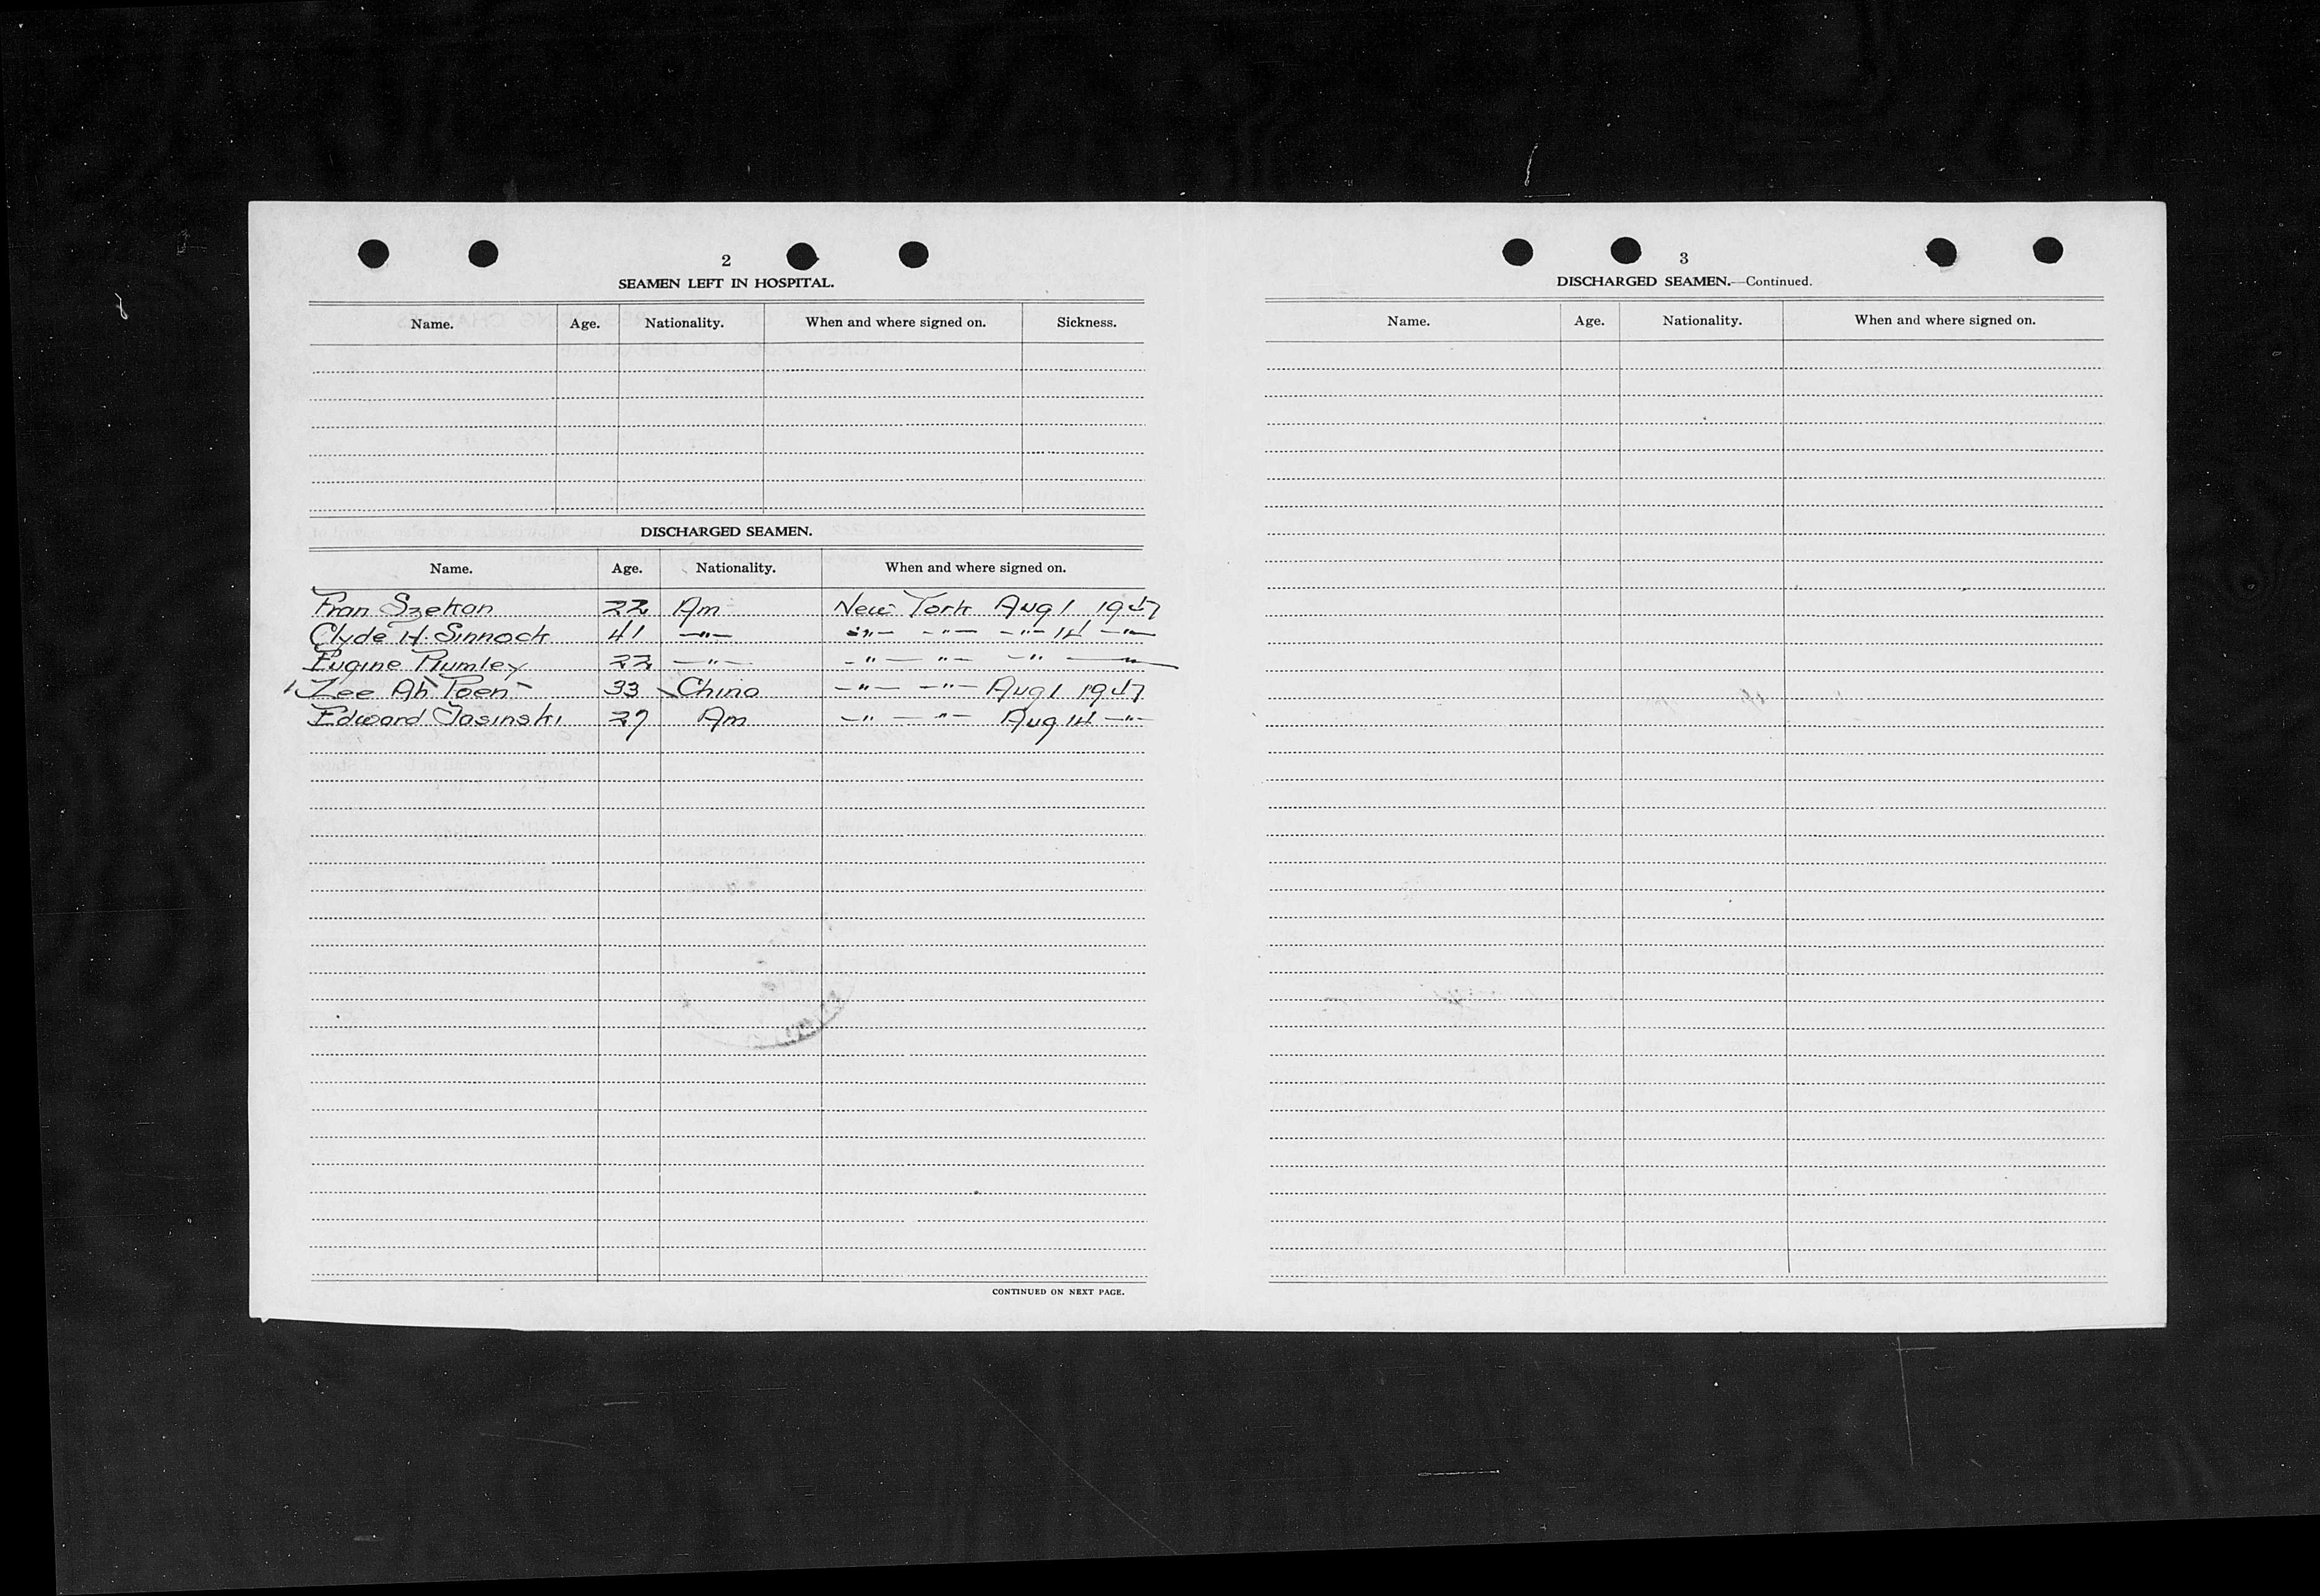 2
SEAMEN LEFT IN HOSPITAL.
Name. Age. Nationality. When and where signed on. Sickness.
DISCHARGED SEAMEN.
Name. Age. Nationality. When and where signed on.
Fran Szekan 22 Am New York Aug 1 1947
Clyde H. Sinnock 41 —"— —"— —"— —"— 14 —"—
Eugine Plumley 22 —"— —"— —"— —"— —"—
Zee Ah Poen 33 China —"— —"— Aug 1 1947
Edward Jasinski 27 Am —"— —"— Aug 14 —"—
CONTINUED ON NEXT PAGE.
3
DISCHARGED SEAMEN.—Continued.
Name. Age. Nationality. When and where signed on.